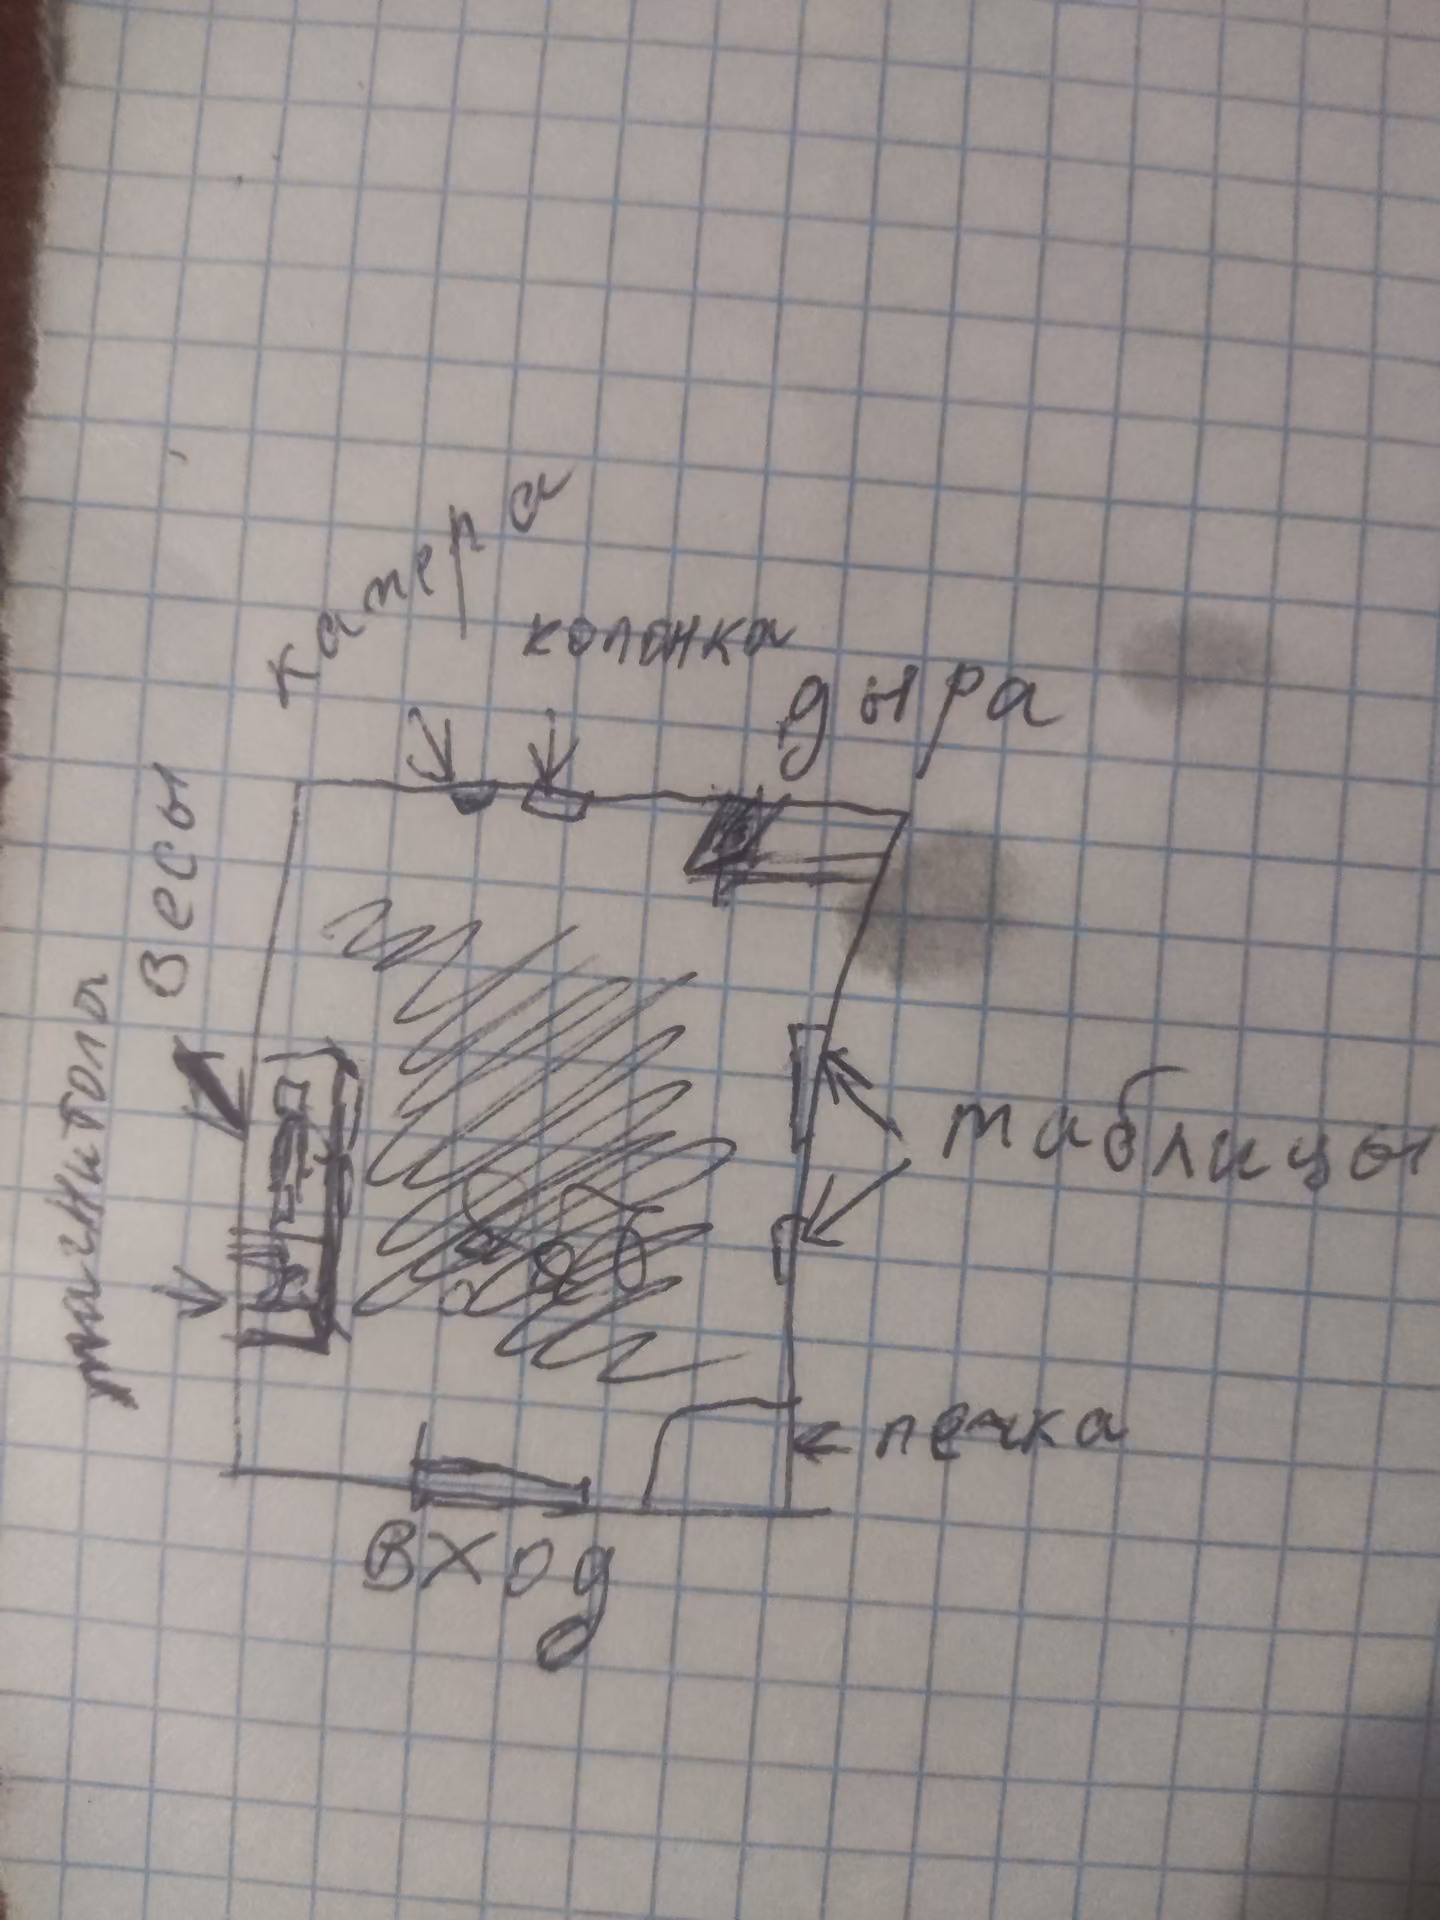 камера
колонка
дыра
Весы
магнитола
таблицы
печка
вход